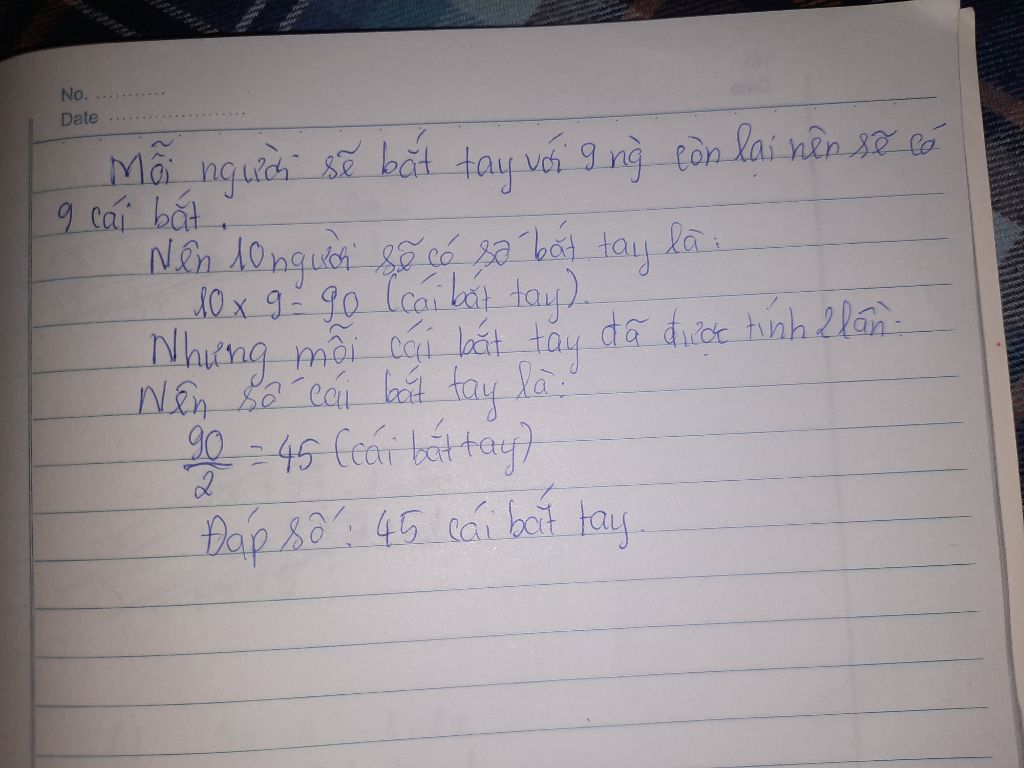 No. ...........
Date .......................
Mỗi người sẽ bắt tay với 9 ng̀ còn lại nên sẽ có
9 cái bắt.
Nên 10 người sẽ có số bắt tay là:
10 x 9 = 90 (cái bắt tay).
Nhưng mỗi cái bắt tay đã được tính 2 lần.
Nên số cái bắt tay là:
90/2 = 45 (cái bắt tay)
Đáp số: 45 cái bắt tay.